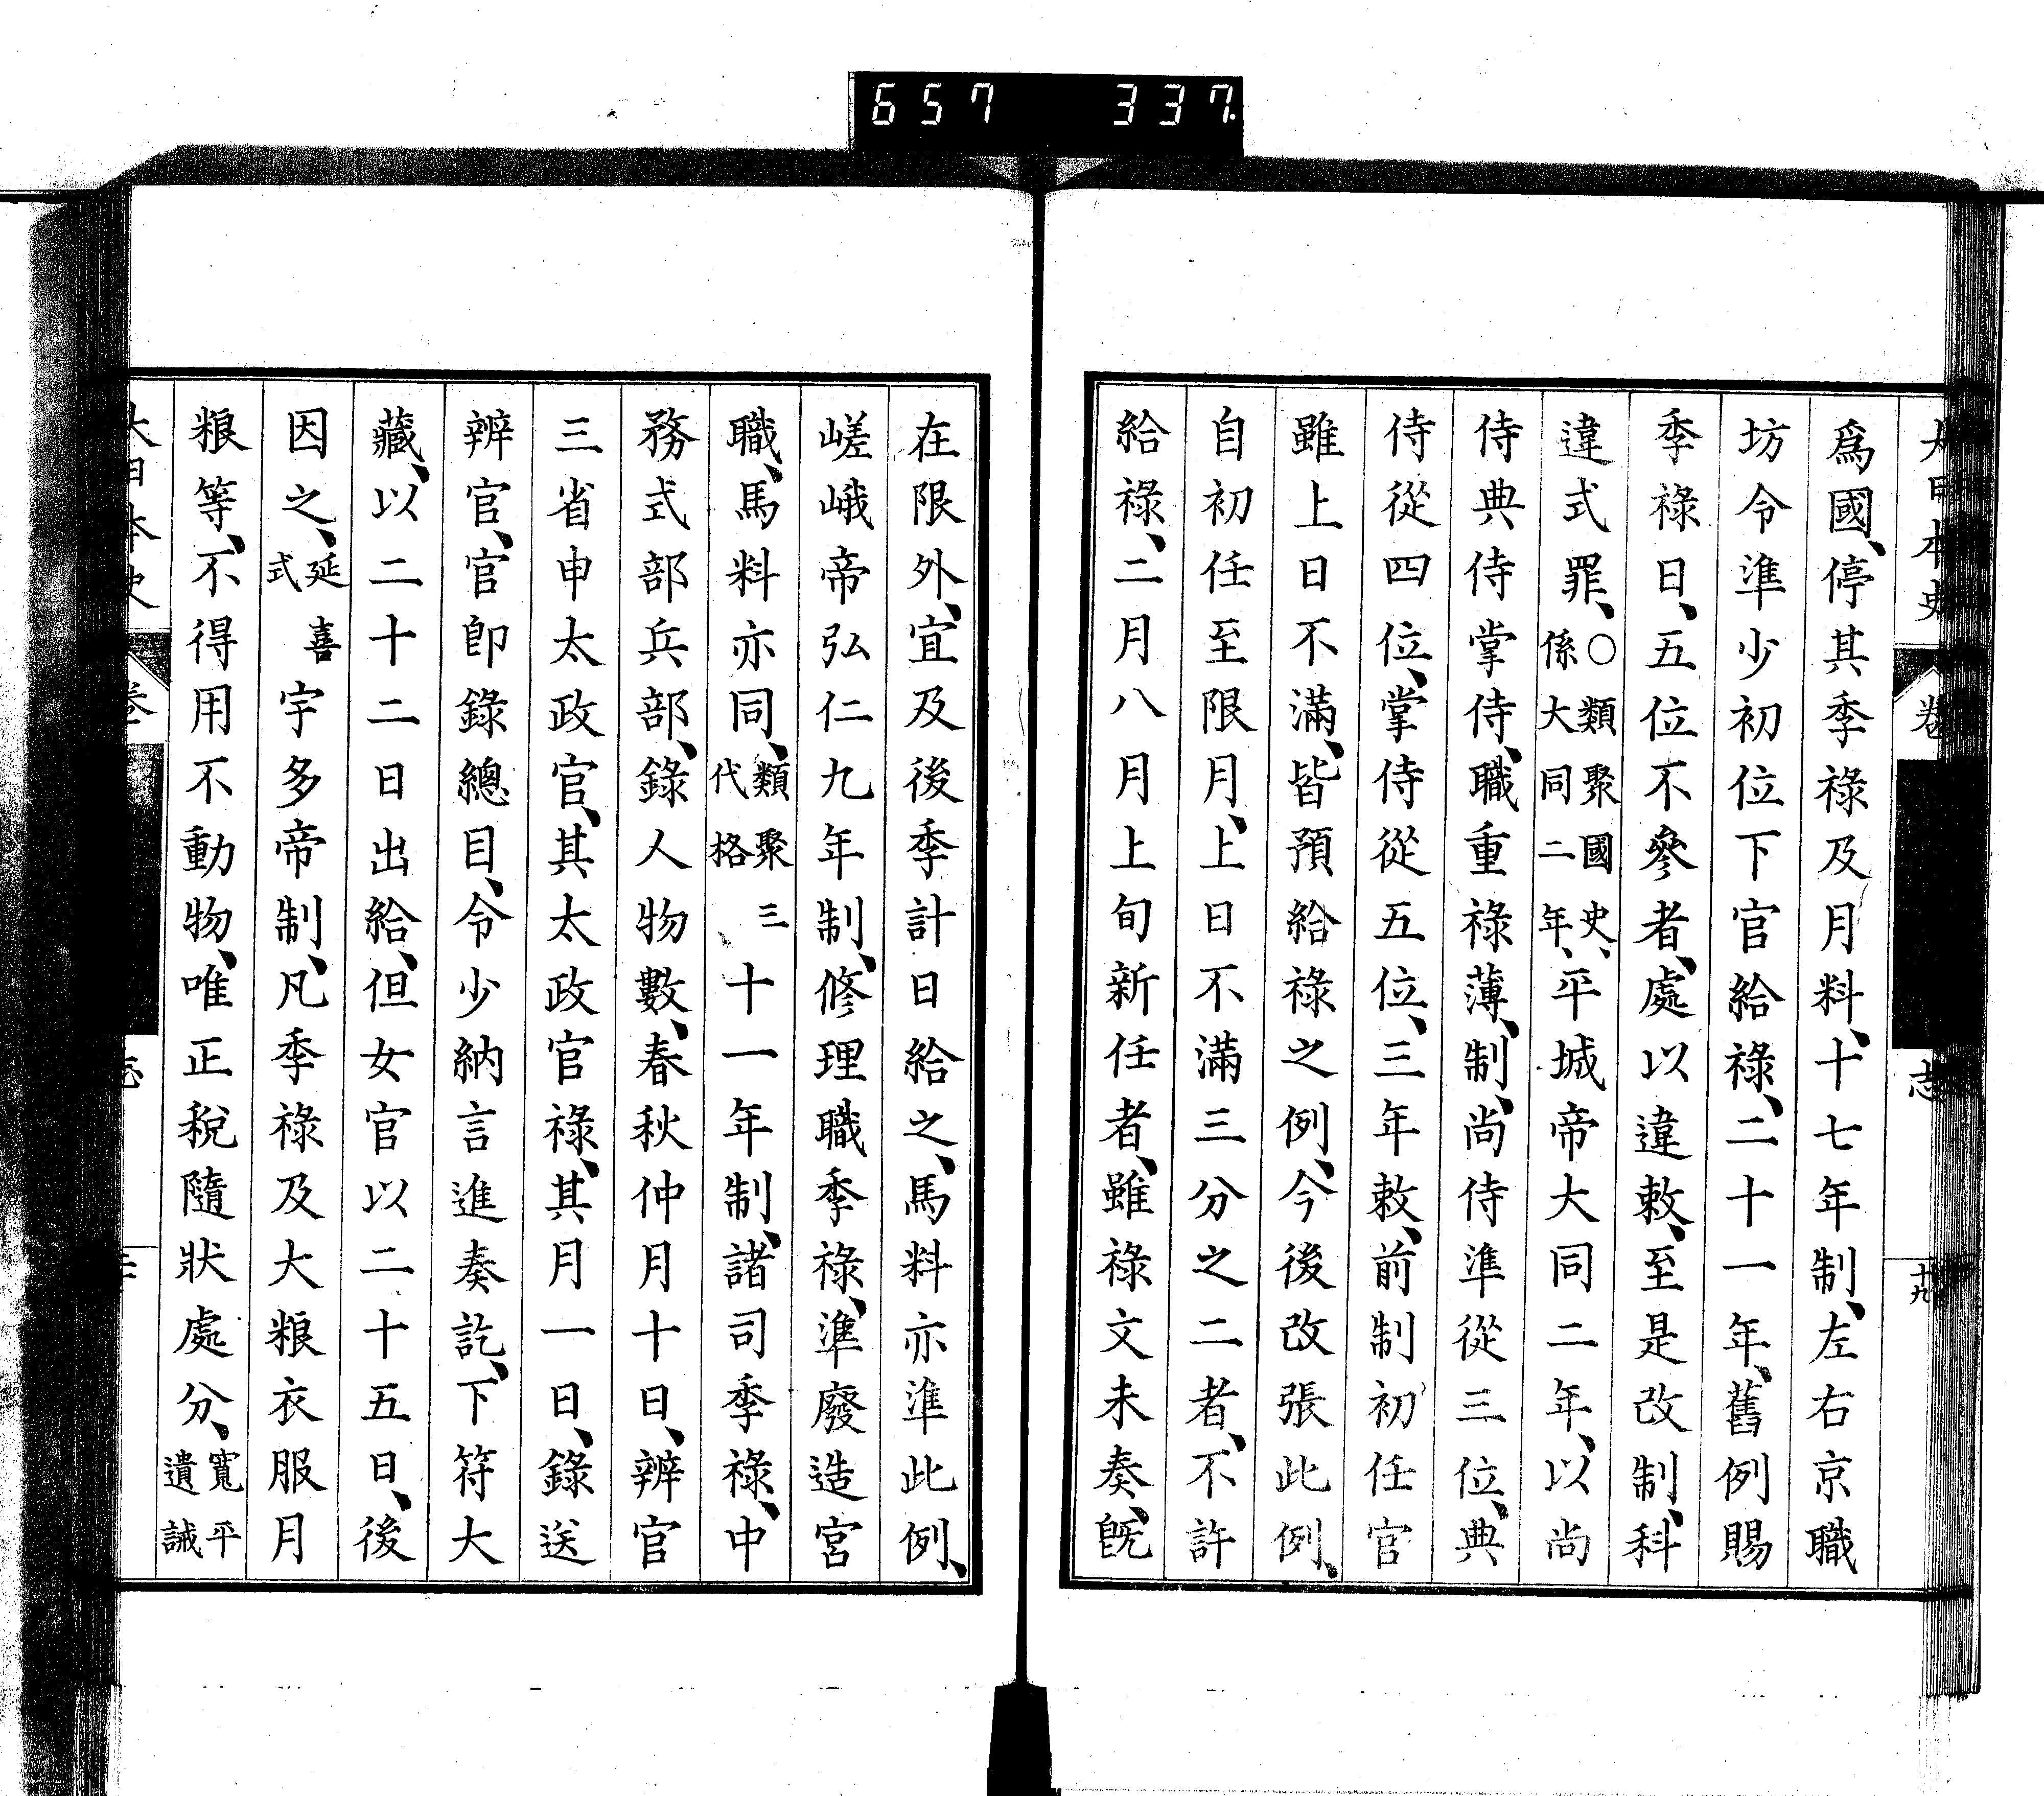 657 337.
大日本史 卷 志 十九
爲國、停其季祿及月料、十七年制、左右京職
坊令準少初位下官給祿、二十一年、舊例賜
季祿日、五位不參者、處以違敕、至是改制、科
違式罪、〇類聚國史、係大同二年、平城帝大同二年、以尚
侍典侍掌侍、職重祿薄、制、尚侍準從三位、典
侍從四位、掌侍從五位、三年敕、前制初任官
雖上日不滿、皆預給祿之例、今後改張此例、
自初任至限月、上日不滿三分之二者、不許
給祿、二月八月上旬新任者、雖祿文未奏、旣
在限外、宜及後季計日給之、馬料亦準此例、
嵯峨帝弘仁九年制、修理職季祿、準廢造宮
職、馬料亦同、類聚三代格十一年制、諸司季祿、中
務式部兵部、錄人物數、春秋仲月十日、辨官
三省申太政官、其太政官祿、其月一日、錄送
辨官、官卽錄總目、令少納言進奏訖、下符大
藏、以二十二日出給、但女官以二十五日、後
因之、延喜式宇多帝制、凡季祿及大粮衣服月
粮等、不得用不動物、唯正稅隨狀處分、寬平遺誡
大日本史 卷 志